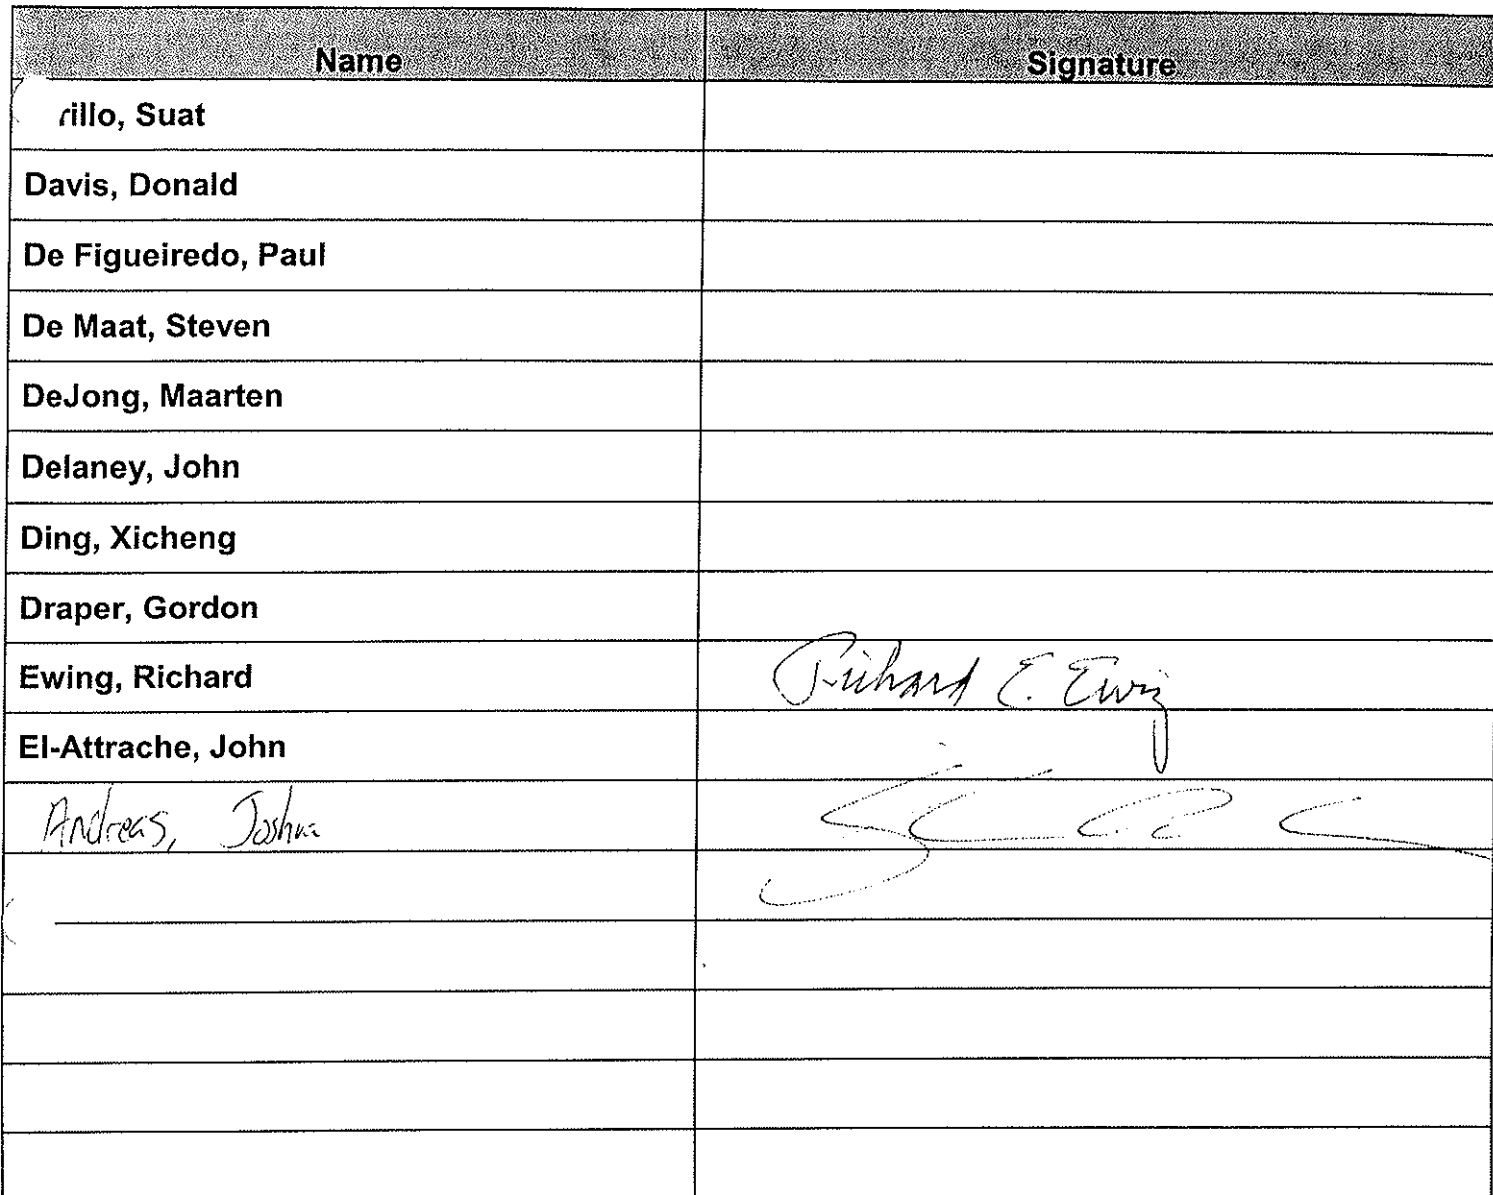 Name Signature
rillo, Suat
Davis, Donald
De Figueiredo, Paul
De Maat, Steven
DeJong, Maarten
Delaney, John
Ding, Xicheng
Draper, Gordon
Ewing, Richard Richard E. Ewing
El-Attrache, John
Andreas, Joshua